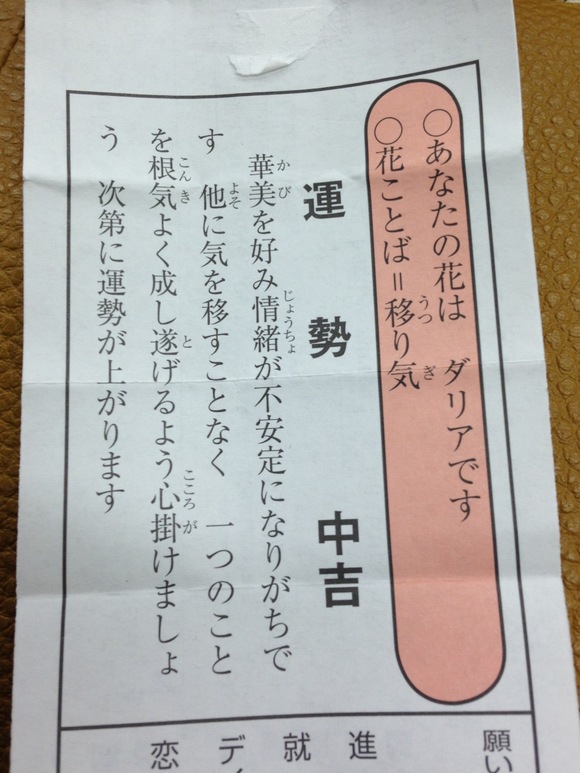 ○あなたの花は　ダリアです
○花ことば＝移り気
運勢　中吉
華美を好み情緒が不安定になりがちで
す　他に気を移すことなく　一つのこと
を根気よく成し遂げるよう心掛けましょ
う　次第に運勢が上がります
願い
進
就
デ
恋